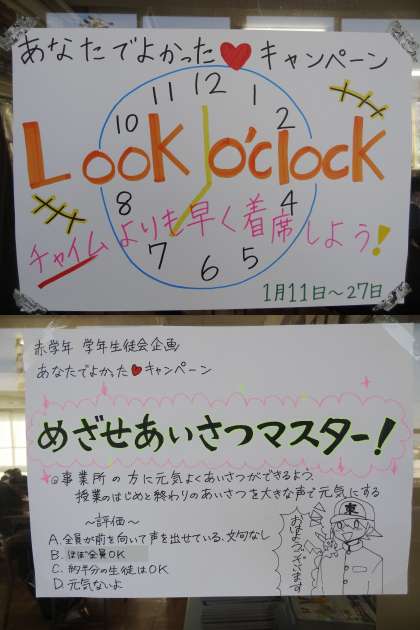 あなたでよかった♥キャンペーン
11 12 1
10 2
Look o'clock
8 4
チャイムよりも早く着席しよう!
7 6 5
1月11日～27日
赤学年 学年生徒会企画
あなたでよかった♥キャンペーン
めざせあいさつマスター!
◎事業所の方に元気よくあいさつができるよう、
授業のはじめと終わりのあいさつを大きな声で元気にする
～評価～
A. 全員が前を向いて声を出せている、文句なし
B. ほぼ全員OK
C. 約半分の生徒はOK
D. 元気ないよ
東
おはようございます